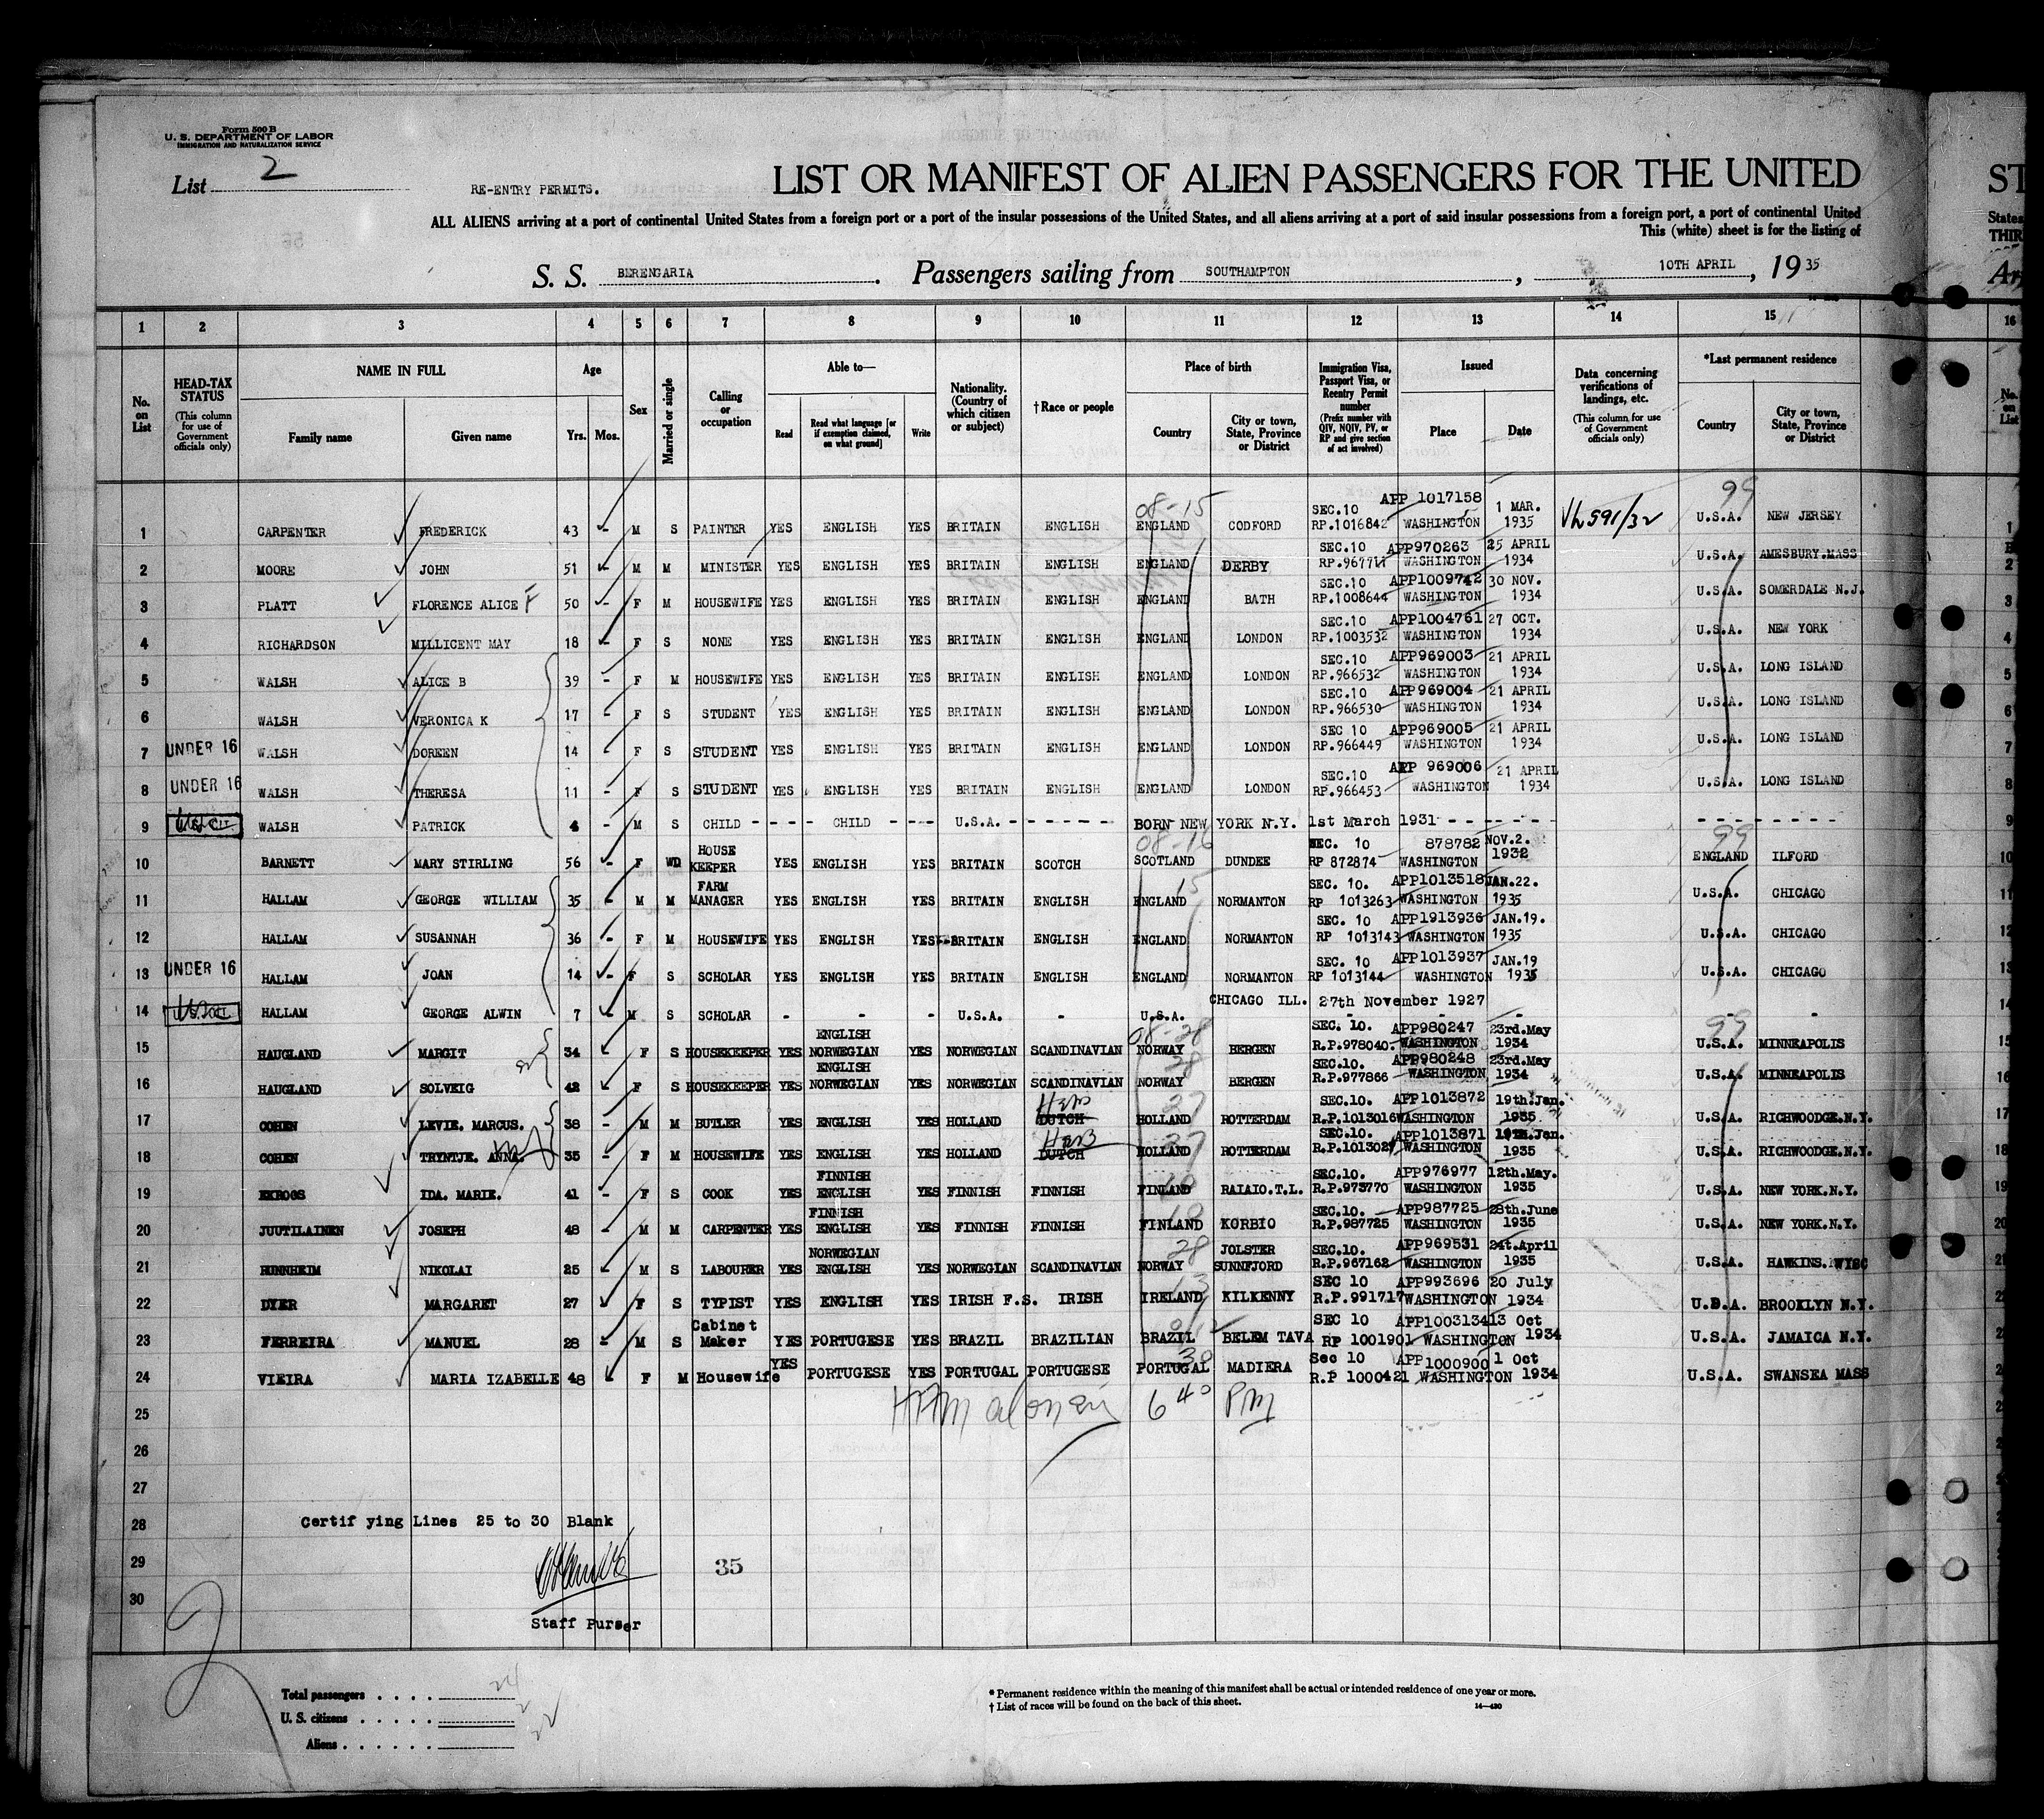 Form 500 B
U. S. DEPARTMENT OF LABOR
IMMIGRATION AND NATURALIZATION SERVICE
List 2
RE-ENTRY PERMITS.
LIST OR MANIFEST OF ALIEN PASSENGERS FOR THE UNITED
ST
ALL ALIENS arriving at a port of continental United States from a foreign port or a port of the insular possessions of the United States, and all aliens arriving at a port of said insular possessions from a foreign port, a port of continental United
States
This (white) sheet is for the listing of
THIR
S. S. BERENGARIA. Passengers sailing from SOUTHAMPTON, 10TH APRIL, 1935
1 2 3 4 5 6 7 8 9 10 11 12 13 14 15 16
No. on List
HEAD-TAX STATUS (This column for use of Government officials only)
NAME IN FULL
Family name
Given name
Age
Yrs. Mos.
Sex
Married or single
Calling or occupation
Able to—
Read
Read what language [or if exemption claimed, on what ground]
Write
Nationality. (Country of which citizen or subject)
†Race or people
Place of birth
Country
City or town, State, Province or District
Immigration Visa, Passport Visa, or Reentry Permit number (Prefix number with QIV, NQIV, PV, or RP and give section of act involved)
Issued
Place
Date
Data concerning verifications of landings, etc. (This column for use of Government officials only)
*Last permanent residence
Country
City or town, State, Province or District
No. on List
08-15 99
1 CARPENTER FREDERICK 43 - M S PAINTER YES ENGLISH YES BRITAIN ENGLISH ENGLAND CODFORD SEC.10 RP.1016842 APP 1017158 WASHINGTON 1 MAR. 1935 U.S.A. NEW JERSEY
2 MOORE JOHN 51 - M M MINISTER YES ENGLISH YES BRITAIN ENGLISH ENGLAND DERBY SEC.10 RP.967711 APP970263 WASHINGTON 25 APRIL 1934 U.S.A. AMESBURY.MASS
3 PLATT FLORENCE ALICE F 50 - F M HOUSEWIFE YES ENGLISH YES BRITAIN ENGLISH ENGLAND BATH SEC.10 RP.1008644 APP1009742 WASHINGTON 30 NOV. 1934 U.S.A. SOMERDALE N.J.
4 RICHARDSON MILLICENT MAY 18 - F S NONE YES ENGLISH YES BRITAIN ENGLISH ENGLAND LONDON SEC.10 RP.1003532 APP1004761 WASHINGTON 27 OCT. 1934 U.S.A. NEW YORK
5 WALSH ALICE B 39 - F M HOUSEWIFE YES ENGLISH YES BRITAIN ENGLISH ENGLAND LONDON SEC.10 RP.966532 APP969003 WASHINGTON 21 APRIL 1934 U.S.A. LONG ISLAND
6 WALSH VERONICA K 17 - F S STUDENT YES ENGLISH YES BRITAIN ENGLISH ENGLAND LONDON SEC.10 RP.966530 APP969004 WASHINGTON 21 APRIL 1934 U.S.A. LONG ISLAND
7 UNDER 16 WALSH DOREEN 14 - F S STUDENT YES ENGLISH YES BRITAIN ENGLISH ENGLAND LONDON SEC 10 RP.966449 APP969005 WASHINGTON 21 APRIL 1934 U.S.A. LONG ISLAND
8 UNDER 16 WALSH THERESA 11 - F S STUDENT YES ENGLISH YES BRITAIN ENGLISH ENGLAND LONDON SEC.10 RP.966453 APP 969006 WASHINGTON 21 APRIL 1934 U.S.A. LONG ISLAND
9 WALSH PATRICK 4 - M S CHILD - - - - CHILD - - - U.S.A. - - - - - - - BORN NEW YORK N.Y. 1st March 1931 - - - - - - -
08-16 99
10 BARNETT MARY STIRLING 56 - F WD HOUSE KEEPER YES ENGLISH YES BRITAIN SCOTCH SCOTLAND DUNDEE SEC. 10 RP 872874 878782 WASHINGTON NOV.2. 1932 ENGLAND ILFORD
15
11 HALLAM GEORGE WILLIAM 35 - M M FARM MANAGER YES ENGLISH YES BRITAIN ENGLISH ENGLAND NORMANTON SEC. 10. RP 1013263 APP1013518 WASHINGTON JAN.22. 1935 U.S.A. CHICAGO
12 HALLAM SUSANNAH 36 - F M HOUSEWIFE YES ENGLISH YES BRITAIN ENGLISH ENGLAND NORMANTON SEC. 10 RP 1013143 APP1913936 WASHINGTON JAN.19. 1935 U.S.A. CHICAGO
13 UNDER 16 HALLAM JOAN 14 - F S SCHOLAR YES ENGLISH YES BRITAIN ENGLISH ENGLAND NORMANTON SEC. 10 RP 1013144 APP1013937 WASHINGTON JAN.19 1935 U.S.A. CHICAGO
14 HALLAM GEORGE ALWIN 7 - M S SCHOLAR - - - U.S.A. - U.S.A. CHICAGO ILL. 27th November 1927 - - - - -
08-28 99
15 HAUGLAND MARGIT 34 - F S HOUSEKEEPER YES ENGLISH NORWEGIAN YES NORWEGIAN SCANDINAVIAN NORWAY BERGEN SEC. 10. R.P.978040. APP980247 WASHINGTON 23rd.May 1934 U.S.A. MINNEAPOLIS
28
16 HAUGLAND SOLVEIG 42 - F S HOUSEKEEPER YES ENGLISH NORWEGIAN YES NORWEGIAN SCANDINAVIAN NORWAY BERGEN SEC.10. R.P.977866 APP980248 WASHINGTON 23rd.May 1934 U.S.A. MINNEAPOLIS
17 COHEN LEVIE. MARCUS. 38 - M M BUTLER YES ENGLISH YES HOLLAND DUTCH Heb HOLLAND 27 ROTTERDAM SEC.10. R.P.1013016 APP1013872 WASHINGTON 19th.Jan. 1935 U.S.A. RICHWOODGE.N.Y.
18 COHEN TRYNTJE. ANNA. 35 - F M HOUSEWIFE YES ENGLISH YES HOLLAND DUTCH Heb HOLLAND 27 ROTTERDAM SEC.10. APP1013871 WASHINGTON 19th.Jan. 1935 U.S.A. RICHWOODGE.N.Y.
19 EKROOS IDA. MARIE. 41 - F S COOK YES FINNISH ENGLISH YES FINNISH FINNISH FINLAND RAIAIO.T.L. SEC.10. R.P.973770 APP976977 WASHINGTON 12th.May. 1935 U.S.A. NEW YORK.N.Y.
20 JUUTILAINEN JOSEPH 48 - M M CARPENTER YES FINNISH ENGLISH YES FINNISH FINNISH FINLAND KORBIO SEC.10. R.P.987725 APP987725 WASHINGTON 28th.June 1935 U.S.A. NEW YORK.N.Y.
21 RUNNHEIM NIKOLAI 25 - M S LABOURER YES NORWEGIAN ENGLISH YES NORWEGIAN SCANDINAVIAN NORWAY 28 JOLSTER SUNNFJORD SEC.10. R.P.967162 APP969531 WASHINGTON 24t.April 1935 U.S.A. HAWKINS. WYSC
22 DYER MARGARET 27 F S TYPIST YES ENGLISH YES IRISH F.S. IRISH IRELAND 13 KILKENNY SEC 10 R.P.991717 APP993696 WASHINGTON 20 July 1934 U.D.A. BROOKLYN N.Y.
23 FERREIRA MANUEL 28 - M S Cabinet Maker YES PORTUGESE YES BRAZIL BRAZILIAN BRAZIL BELEM TAVA SEC 10 RP 1001901 APP1003134 WASHINGTON 13 Oct 1934 U.S.A. JAMAICA N.Y.
24 VIEIRA MARIA IZABELLE 48 F M Housewife YES PORTUGESE YES PORTUGAL PORTUGESE PORTUGAL 30 MADIERA Sec 10 R.P 1000421 APP1000900 WASHINGTON 1 Oct 1934 U.S.A. SWANSEA MASS
25 6 40 PM
26
27
28 Certif ying Lines 25 to 30 Blank
29 35
30
Staff Purser
Total passengers . . . . 24
U. S. citizens . . . . . 2
Aliens . . . . . . 22
* Permanent residence within the meaning of this manifest shall be actual or intended residence of one year or more.
† List of races will be found on the back of this sheet.
14—430